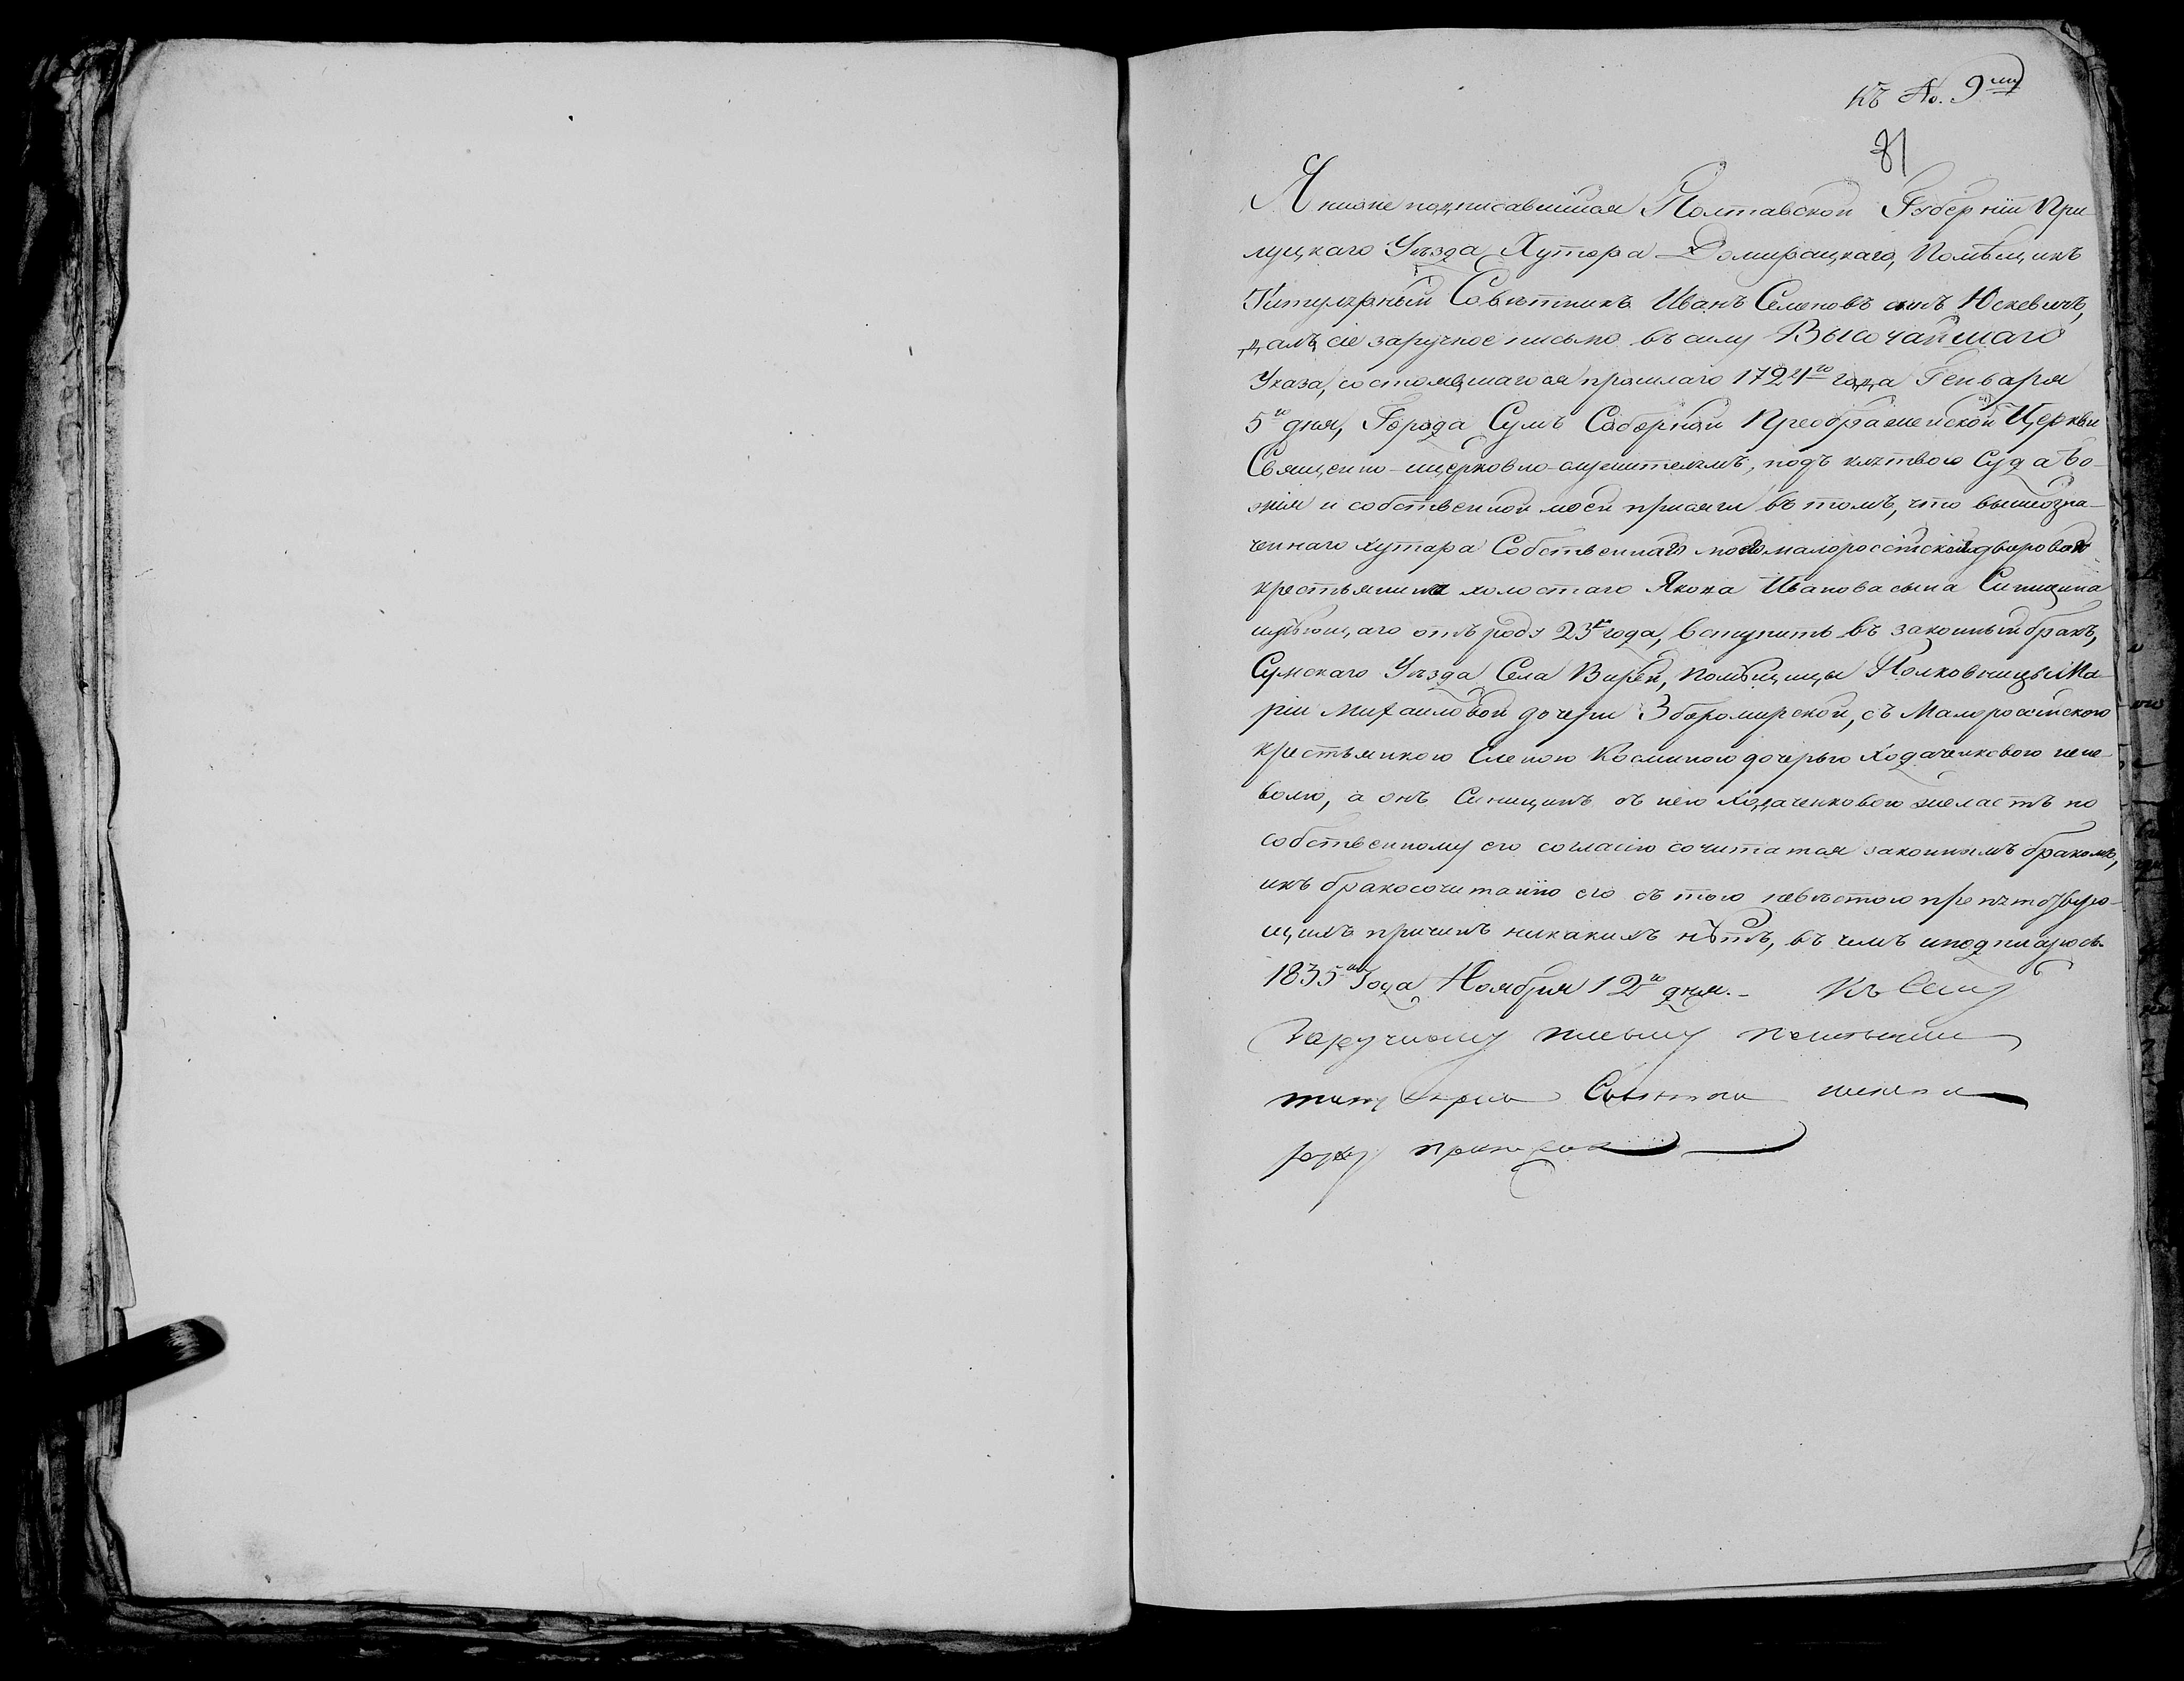 Къ No. 9му
81
Я ниже подписавшійся Полтавской Губерніи При-
луцкаго Уѣзда Хутора Домирацкаго, Помѣщикъ
Титулярный Совѣтникъ Иванъ Семеновъ сынъ Юскевичъ,
далъ сіе заручное письмо въ силу Высочайшаго
Указа, состоявшагося прошлаго 1724го года Генваря
5го дня, Города Сумъ Соборной Преображенской Церкви
Священно-ицерковно-служителямъ, подъ клятвою Суда Бо-
жія и собственной моей присяги въ томъ, что вышеозна-
ченнаго хутора Собственнаго моего малороссійскаго двороваго
крестьянина холостаго Якова Иванова сына Синицина
имѣющаго отъ роду 23 года, вступить въ законный бракъ,
Сумскаго Уѣзда Села Вирей, помѣщицы Полковницы Ма-
ріи Михаиловой дочери Зборомирской, съ Малороссійскою
крестьянкою Еленою Косминою дочерью Ходаченковою нене-
волю, а онъ Синицинъ съ нею Ходаченковою желаетъ по
собственному его согласію сочитатся законнымъ бракомъ,
икъ бракосочитанію его съ тою невѣстою препятствую-
щихъ причинъ никакихъ нѣтъ, въ чемъ иподписуюсь
1835го Года Ноября 12го дня.- Къ Сему
заручному письму
руку приложилъ